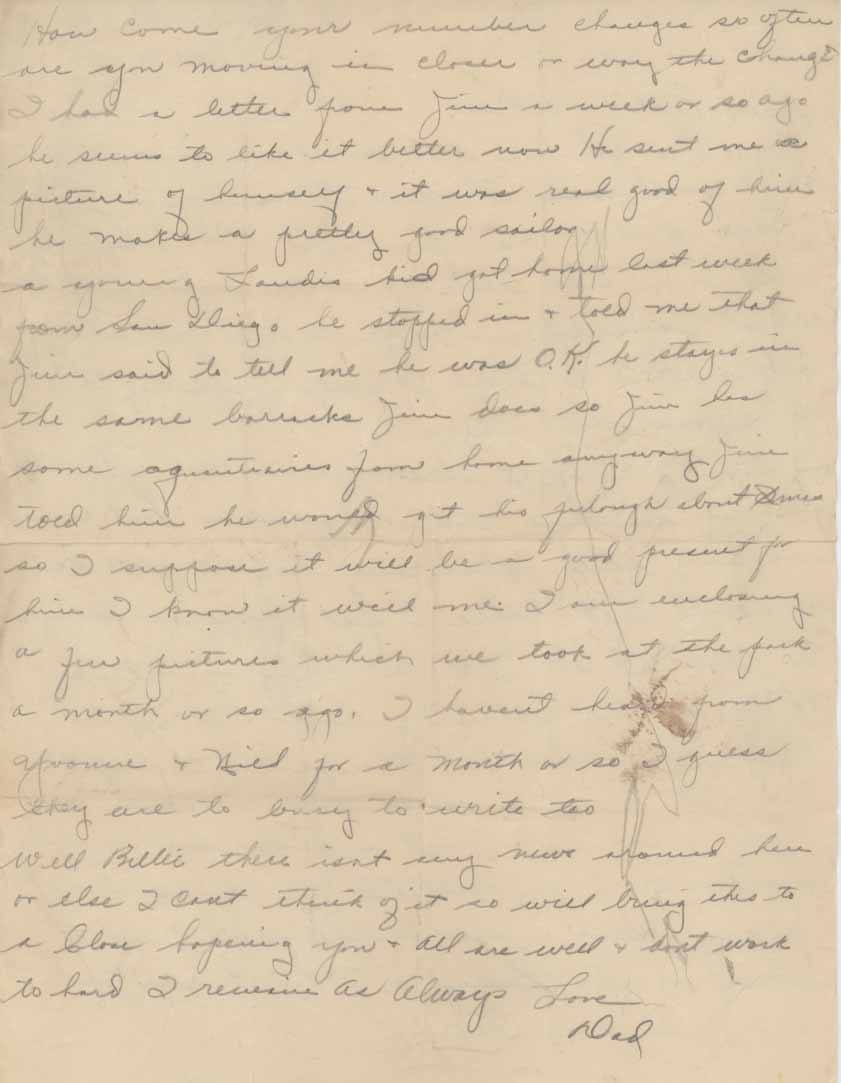 How come your number changes so often
are you moving in closer or way the change
I had a letter from Jim a week or so ago
he seems to like it better now He sent me a
picture of himself + it was real good of him
he makes a pretty good sailor
a young Landis kid got home last week
from San Diego he stopped in + told me that
Jim said to tell me he was O.K. he stayes in
the same barracks Jim does so Jim has
some aquintraires from home anyway Jim
told him he would get his furlough about Xmas
so I suppose it will be a good present for
him I know it will me. I am enclosing
a few pictures which we took at the park
a month or so ago. I havent heard from
Yvonne + Bill for a month or so I guess
they are to busy to write too
Well Billie there isnt any news around here
or else I cant think of it so will bring this to
a Close hopeing you + all are well + dont work
to hard I remain As Always Love
Dad